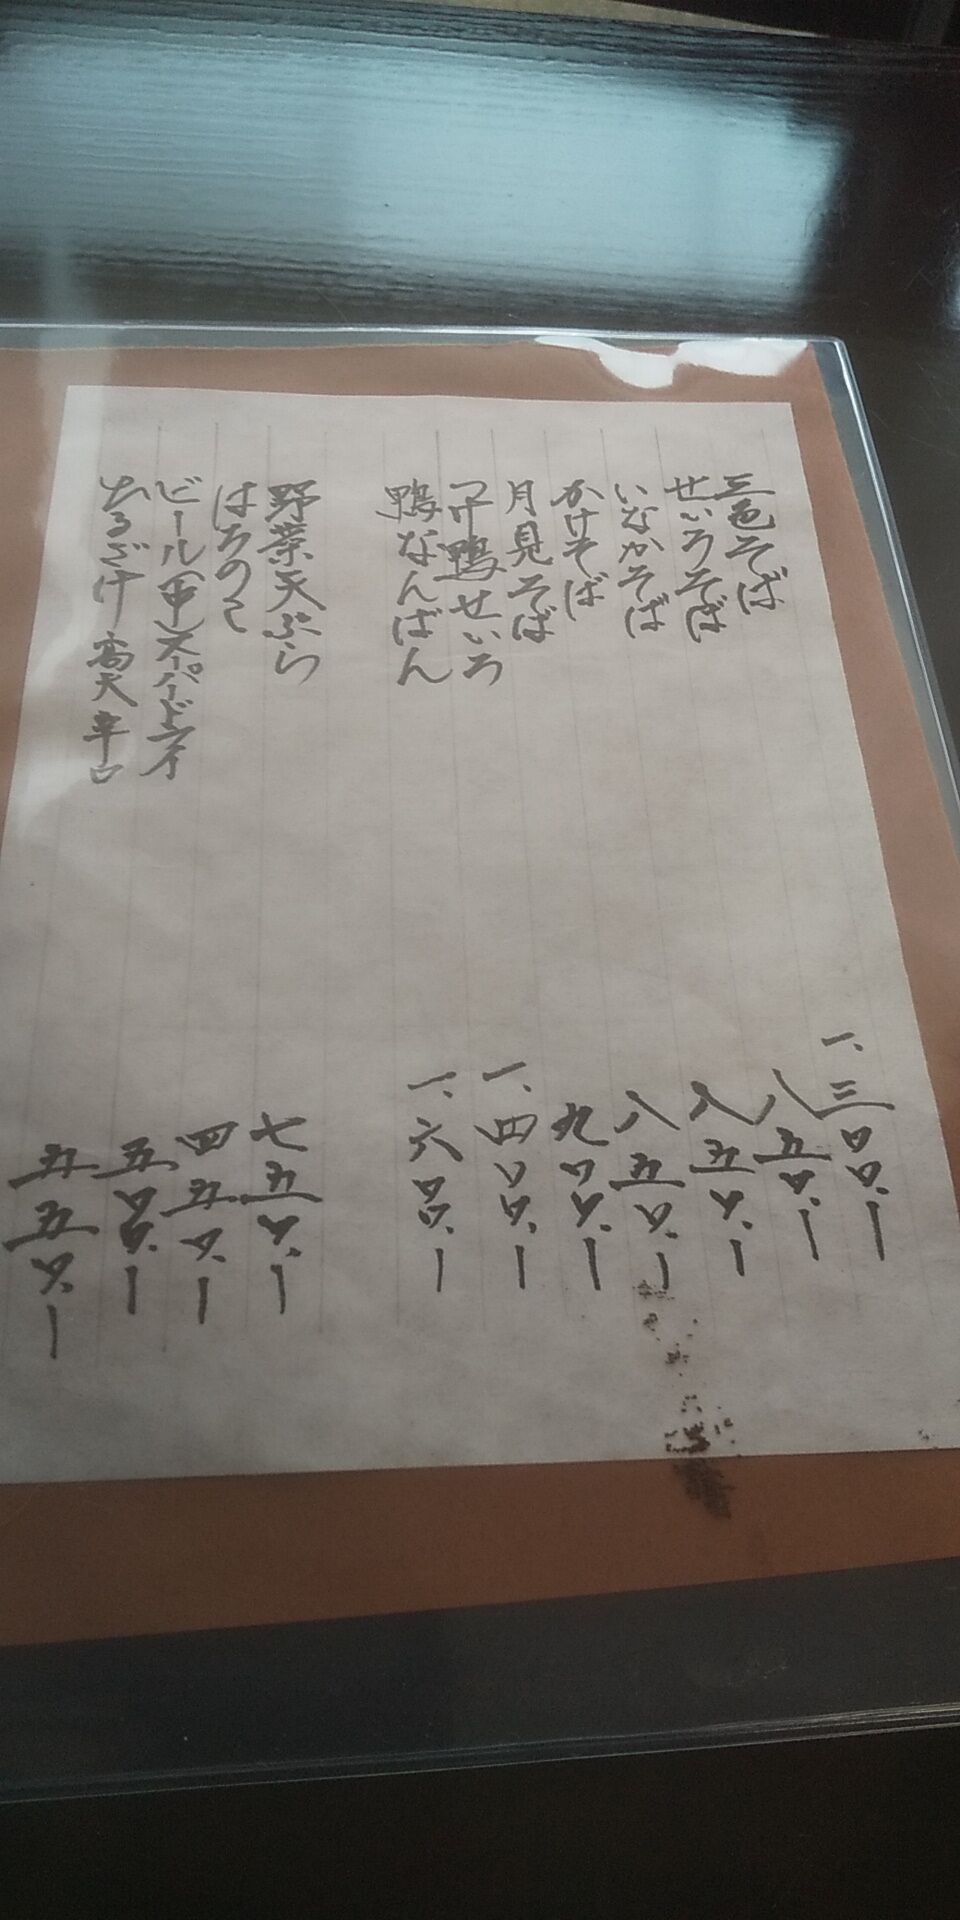 三色そば 一、三〇〇、ー
せいろそば 八五〇、ー
いなかそば 八五〇、ー
かけそば 八五〇、ー
月見そば 九〇〇、ー
つけ鴨せいろ 一、四〇〇、ー
鴨なんばん 一、六〇〇、ー
野菜天ぷら 七五〇、ー
はちのこ 四五〇、ー
ビール(中)スーパードライ 五〇〇、ー
たるざけ 高天 辛口 五五〇、ー